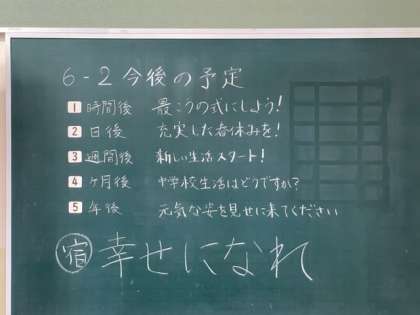 6-2 今後の予定
1 時間後 最こうの式にしよう!
2 日後 充実した春休みを!
3 週間後 新しい生活スタート!
4 ヶ月後 中学校生活はどうですか?
5 年後 元気な姿を見せに来てください
宿 幸せになれ